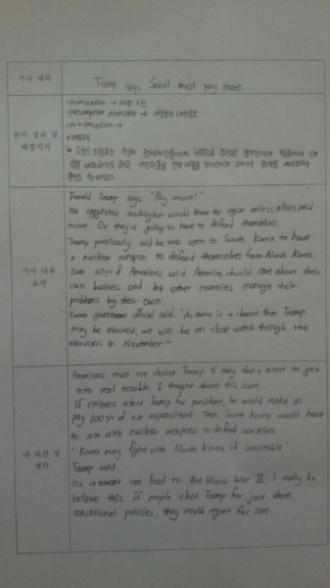 기사 제목
Trump says Seoul must pay more
용어 정리 및
배경지식
-nomination → 지명, 추천
-presumptive nominee →
기사 내용
요약
Donald Trump says "Pay more!"
He suggested Washington would leave the region unless allies paid
more. Or they're going to have to defend themselves
Trump previously said he was open to South Korea to have
a nuclear weapon to defend themselves from North Korea.
Even 60% of Americans said America should care about their
own business and let other countries manage their
problems by their own.
Korean government official said. "As there is a chance that Trump
may be elected, we will be on close watch through the
elections in November."
내 의견 및
생각
Americans must not choose Trump if they don't want to get
into real trouble. I thought about this issue.
If citizens elect Trump for president, he would make us
pay 100% of our expenditure. Then, South Korea would have
to arm with nuclear weapons to defend ourselves.
"Korea may fight with North Korea if inevitable"
Trump said.
His comment can lead to the World War III. I really do
believe this. If people elect Trump for just these
sensational policies, they would regret for sure.